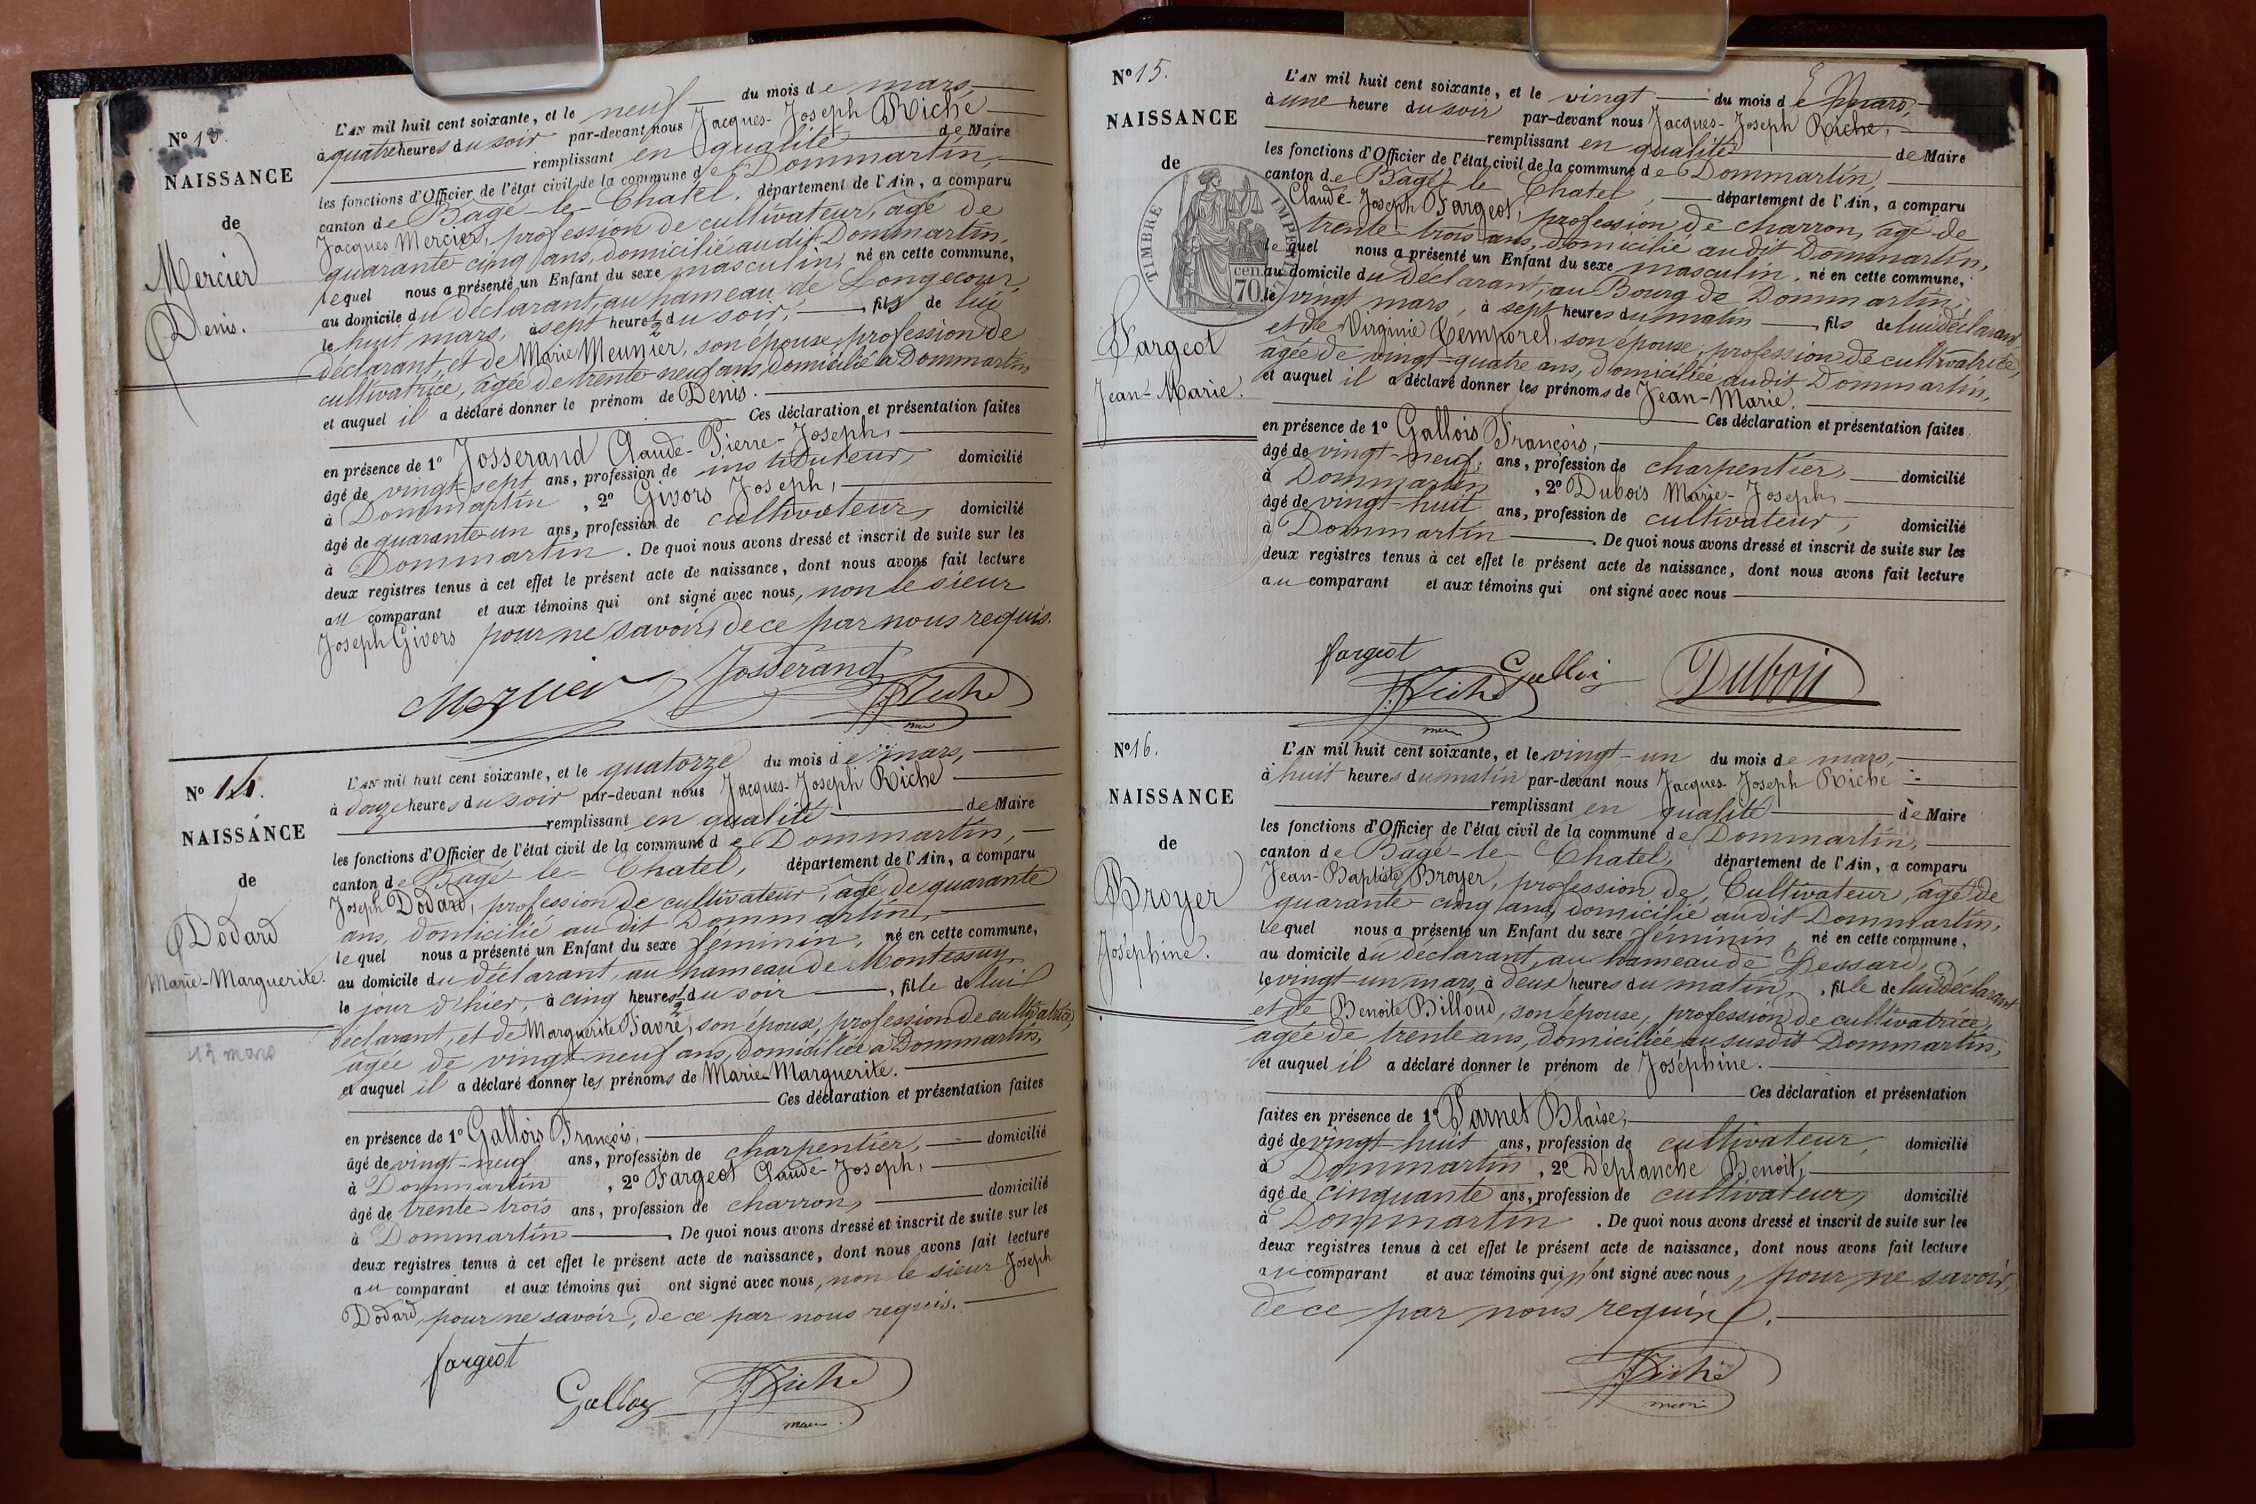 N° 13.
NAISSANCE
de
Mercier
Denis.
L'AN mil huit cent soixante, et le neuf du mois de mars,
à quatre heures du soir par-devant nous Jacques-Joseph Riche
remplissant en qualité de Maire
les fonctions d'Officier de l'état civil de la commune de Dommartin,
canton de Bagé-le-Chatel, département de l'Ain, a comparu
Jacques Mercier, profession de cultivateur, âgé de
quarante cinq ans, domicilié audit Dommartin,
lequel nous a présenté un Enfant du sexe masculin, né en cette commune,
au domicile du déclarant, au hameau de Longecour,
le huit mars, à sept heures ½ du soir, fils de lui
déclarant, et de Marie Meunier, son épouse, profession de
cultivatrice, âgée de trente-neuf ans, domiciliée à Dommartin
et auquel il a déclaré donner le prénom de Denis.
Ces déclaration et présentation faites
en présence de 1° Josserand Claude-Pierre-Joseph,
âgé de vingt-sept ans, profession de instituteur, domicilié
à Dommartin, 2° Givors Joseph,
âgé de quarante-un ans, profession de cultivateur, domicilié
à Dommartin. De quoi nous avons dressé et inscrit de suite sur les
deux registres tenus à cet effet le présent acte de naissance, dont nous avons fait lecture
au comparant et aux témoins qui ont signé avec nous, non le sieur
Joseph Givors pour ne savoir, de ce par nous requis.
Mercier Josserand
J. Riche
maire
N° 14.
NAISSANCE
de
Dodard
Marie-Marguerite.
13 mars
L'AN mil huit cent soixante, et le quatorze du mois de mars,
à douze heures du soir par-devant nous Jacques-Joseph Riche
remplissant en qualité de Maire
les fonctions d'Officier de l'état civil de la commune de Dommartin,
canton de Bagé-le-Chatel, département de l'Ain, a comparu
Joseph Dodard, profession de cultivateur, âgé de quarante
ans, domicilié audit Dommartin,
lequel nous a présenté un Enfant du sexe féminin, né en cette commune,
au domicile du déclarant, au hameau de Montessuy,
le jour d'hier, à cinq heures ½ du soir, fille de lui
déclarant, et de Marguerite Favre, son épouse, profession de cultivatrice,
âgée de vingt-neuf ans, domiciliée à Dommartin,
et auquel il a déclaré donner les prénoms de Marie-Marguerite.
Ces déclaration et présentation faites
en présence de 1° Gallois François,
âgé de vingt-neuf ans, profession de charpentier, domicilié
à Dommartin, 2° Fargeot Claude-Joseph,
âgé de trente-trois ans, profession de charron, domicilié
à Dommartin. De quoi nous avons dressé et inscrit de suite sur les
deux registres tenus à cet effet le présent acte de naissance, dont nous avons fait lecture
au comparant et aux témoins qui ont signé avec nous, non le sieur Joseph
Dodard, pour ne savoir, de ce par nous requis.
fargeot
Galloy J. Riche
maire
N° 15.
NAISSANCE
de
TIMBRE IMPÉRIAL
70 cen.
Fargeot
Jean-Marie.
L'AN mil huit cent soixante, et le vingt du mois de mars,
à une heure du soir par-devant nous Jacques-Joseph Riche,
remplissant en qualité de Maire
les fonctions d'Officier de l'état civil de la commune de Dommartin,
canton de Bagé-le-Chatel, département de l'Ain, a comparu
Claude-Joseph Fargeot, profession de charron, âgé de
trente-trois ans, domicilié audit Dommartin,
lequel nous a présenté un Enfant du sexe masculin, né en cette commune,
au domicile du déclarant, au Bourg de Dommartin,
le vingt mars, à sept heures du matin, fils de lui déclarant
et de Virginie Temporel, son épouse, profession de cultivatrice,
âgée de vingt-quatre ans, domiciliée audit Dommartin,
et auquel il a déclaré donner les prénoms de Jean-Marie.
Ces déclaration et présentation faites
en présence de 1° Gallois François,
âgé de vingt-neuf ans, profession de charpentier, domicilié
à Dommartin, 2° Dubois Marie-Joseph,
âgé de vingt-huit ans, profession de cultivateur, domicilié
à Dommartin. De quoi nous avons dressé et inscrit de suite sur les
deux registres tenus à cet effet le présent acte de naissance, dont nous avons fait lecture
au comparant et aux témoins qui ont signé avec nous
fargeot Galloi Duboii
J. Riche
maire
N° 16.
NAISSANCE
de
Broyer
Joséphine.
L'AN mil huit cent soixante, et le vingt-un du mois de mars,
à huit heures du matin par-devant nous Jacques-Joseph Riche
remplissant en qualité de Maire
les fonctions d'Officier de l'état civil de la commune de Dommartin,
canton de Bagé-le-Chatel, département de l'Ain, a comparu
Jean-Baptiste Broyer, profession de Cultivateur, âgé de
quarante-cinq ans, domicilié audit Dommartin,
lequel nous a présenté un Enfant du sexe féminin, né en cette commune,
au domicile du déclarant, au hameau de Dessard,
le vingt-un mars, à deux heures du matin, fille de lui déclarant
et de Benoite Billoud, son épouse, profession de cultivatrice,
âgée de trente ans, domiciliée au susdit Dommartin,
et auquel il a déclaré donner le prénom de Joséphine.
Ces déclaration et présentation
faites en présence de 1° Varnet Blaise,
âgé de vingt-huit ans, profession de cultivateur, domicilié
à Dommartin, 2° Deplanche Benoit,
âgé de cinquante ans, profession de cultivateur, domicilié
à Dommartin. De quoi nous avons dressé et inscrit de suite sur les
deux registres tenus à cet effet le présent acte de naissance, dont nous avons fait lecture
au comparant et aux témoins qui n'ont signé avec nous, pour ne savoir,
de ce par nous requis.
J. Riche
maire